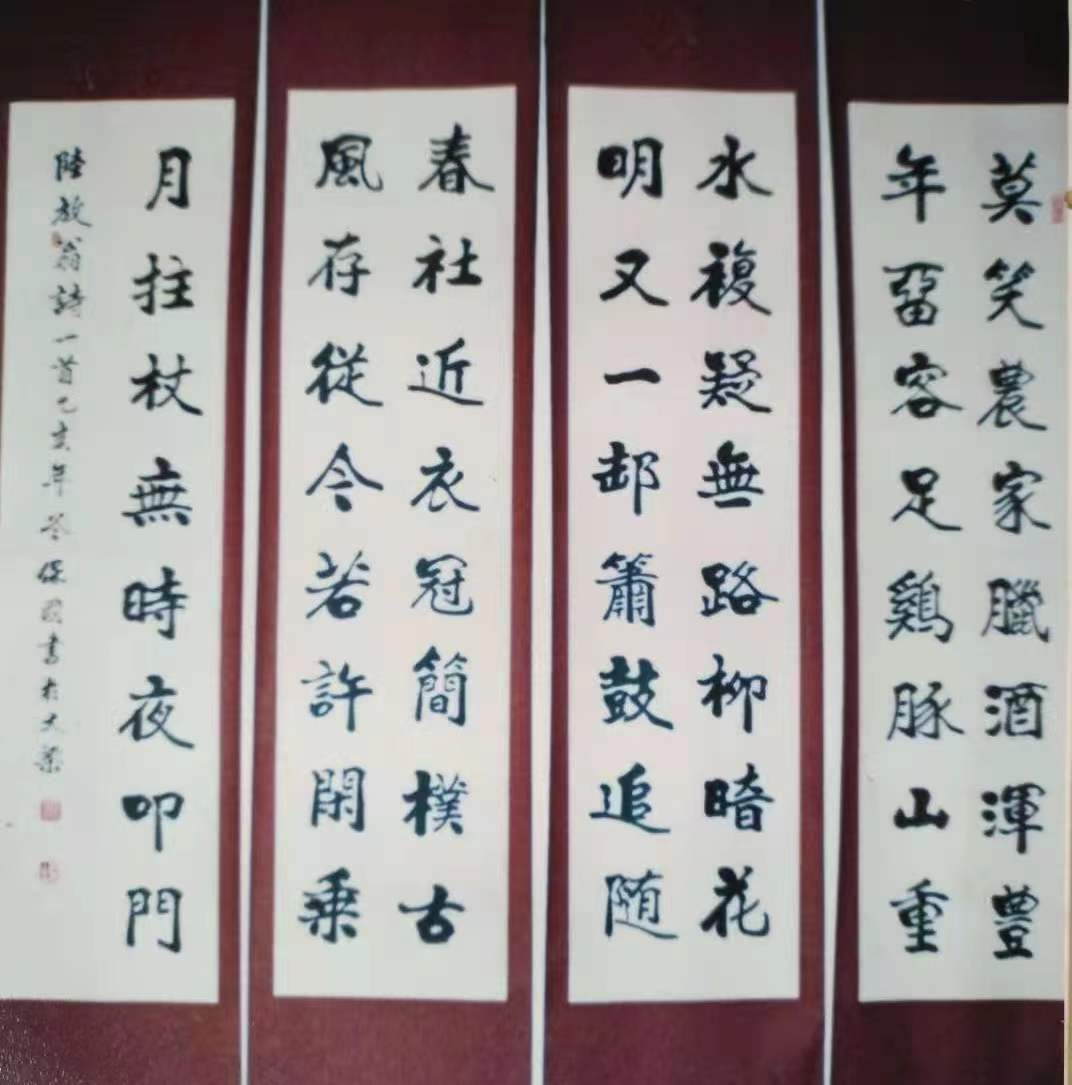 莫笑農家臘酒渾豊
年留客足鷄豚山重
水複疑無路柳暗花
明又一邨簫鼓追随
春社近衣冠簡樸古
風存從今若許閑乘
月拄杖無時夜叩門
陸放翁詩一首乙亥年保國書於大梁